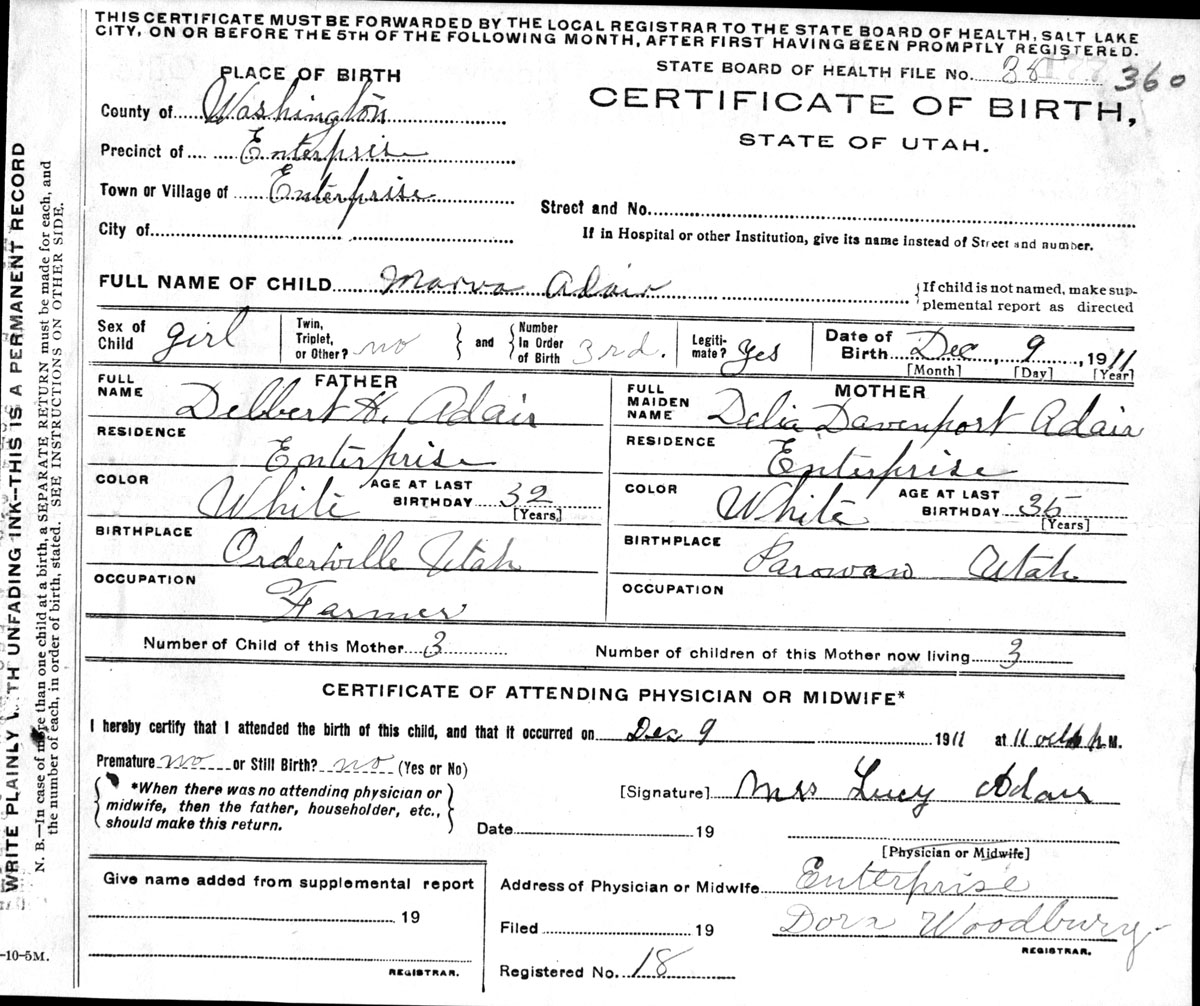 THIS CERTIFICATE MUST BE FORWARDED BY THE LOCAL REGISTRAR TO THE STATE BOARD OF HEALTH, SALT LAKE
CITY, ON OR BEFORE THE 5TH OF THE FOLLOWING MONTH, AFTER FIRST HAVING BEEN PROMPTLY REGISTERED.
WRITE PLAINLY WITH UNFADING INK—THIS IS A PERMANENT RECORD
N. B.—In case of more than one child at a birth, a SEPARATE RETURN must be made for each, and
the number of each, in order of birth, stated. SEE INSTRUCTIONS ON OTHER SIDE.
STATE BOARD OF HEALTH FILE No. 360
PLACE OF BIRTH
CERTIFICATE OF BIRTH,
STATE OF UTAH.
County of Washington
Precinct of Enterprise
Town or Village of Enterprise
Street and No.
City of
If in Hospital or other Institution, give its name instead of Street and number.
FULL NAME OF CHILD Marva Adair
{If child is not named, make sup-
plemental report as directed
Sex of Child girl
Twin, Triplet, or Other? no } and { Number In Order of Birth 3rd.
Legiti- mate? Yes
Date of Birth Dec, 9, 1911
[Month] [Day] [Year]
FATHER
FULL NAME Delbert H. Adair
RESIDENCE Enterprise
COLOR White AGE AT LAST BIRTHDAY 32
[Years]
BIRTHPLACE Orderville Utah
OCCUPATION Farmer
MOTHER
FULL MAIDEN NAME Delia Davenport Adair
RESIDENCE Enterprise
COLOR White AGE AT LAST BIRTHDAY 35
[Years]
BIRTHPLACE Parowan Utah
OCCUPATION
Number of Child of this Mother 3 Number of children of this Mother now living 3
CERTIFICATE OF ATTENDING PHYSICIAN OR MIDWIFE*
I hereby certify that I attended the birth of this child, and that it occurred on Dec 9 1911 at 11 P.M.
Premature no or Still Birth? no (Yes or No)
{*When there was no attending physician or
midwife, then the father, householder, etc.,
should make this return.}
[Signature] Mrs Lucy Adair
Date 19
[Physician or Midwife]
Give name added from supplemental report
19
REGISTRAR.
Address of Physician or Midwife Enterprise
Filed 19 Dora Woodbury
REGISTRAR.
Registered No. 18
-10-5M.